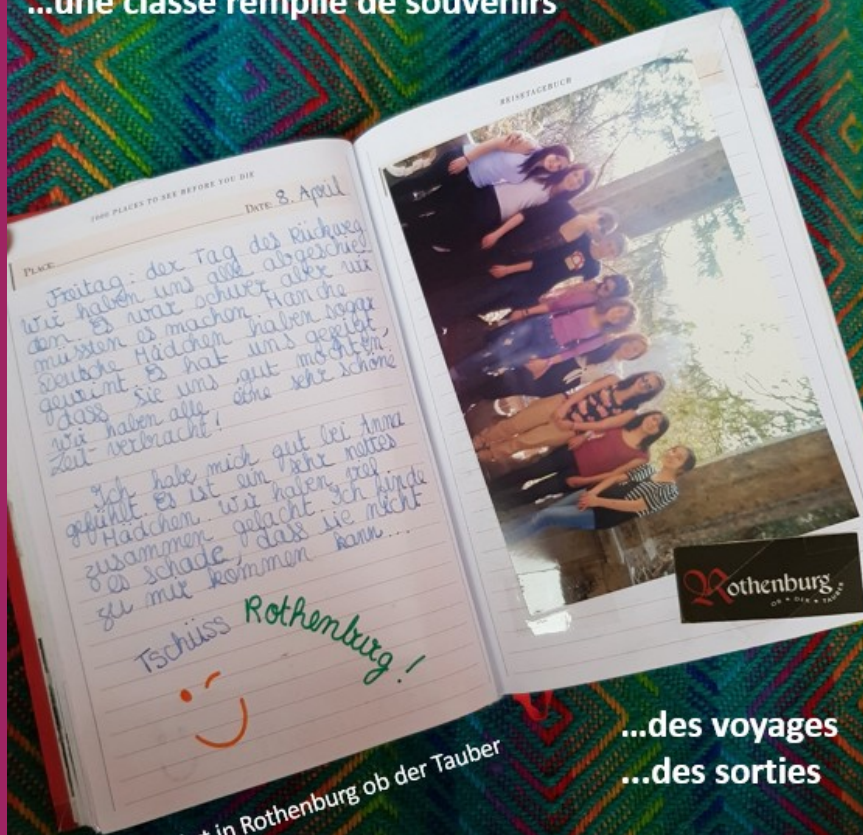 ...une classe remplie de souvenirs
1000 PLACES TO SEE BEFORE YOU DIE
PLACE
DATE 8. April
Freitag: der Tag des Rückweg
Wir haben uns alle abgeschie
den. Es war schwer aber wir
mussten es machen. Manche
Deutsche Mädchen haben sogar
geweint. Es hat uns gezeigt,
dass sie uns gut mochten,
wir haben alle eine sehr schöne
Zeit verbracht!
Ich habe mich gut bei Anna
gefühlt. Es ist ein sehr nettes
Mädchen. Wir haben viel
zusammen gelacht. Ich finde
es schade, dass sie nicht
zu mir kommen kann...
Tschüss Rothenburg!
REISETAGEBUCH
Rothenburg
OB • DER • TAUBER
in Rothenburg ob der Tauber
...des voyages
...des sorties